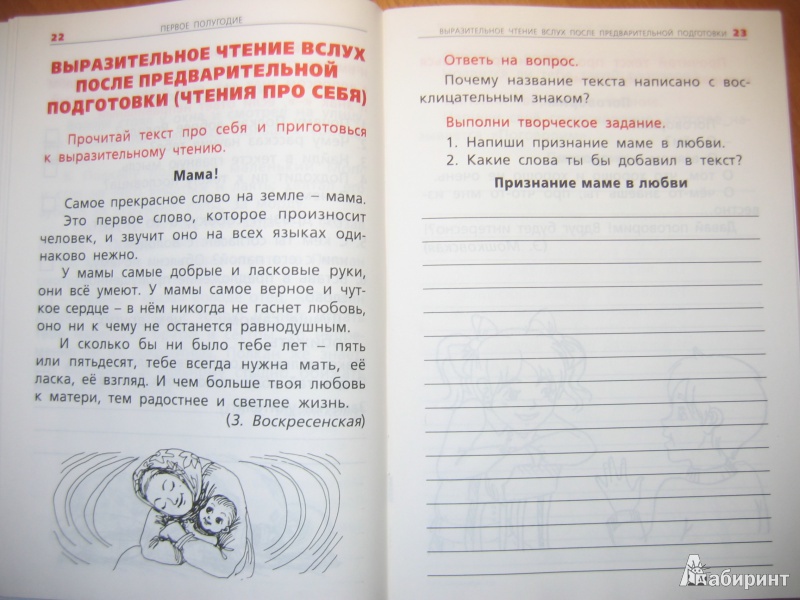 22
ПЕРВОЕ ПОЛУГОДИЕ
ВЫРАЗИТЕЛЬНОЕ ЧТЕНИЕ ВСЛУХ
ПОСЛЕ ПРЕДВАРИТЕЛЬНОЙ
ПОДГОТОВКИ (ЧТЕНИЯ ПРО СЕБЯ)
Прочитай текст про себя и приготовься
к выразительному чтению.
Мама!
Самое прекрасное слово на земле – мама.
Это первое слово, которое произносит
человек, и звучит оно на всех языках оди-
наково нежно.
У мамы самые добрые и ласковые руки,
они всё умеют. У мамы самое верное и чут-
кое сердце – в нём никогда не гаснет любовь,
оно ни к чему не останется равнодушным.
И сколько бы ни было тебе лет – пять
или пятьдесят, тебе всегда нужна мать, её
ласка, её взгляд. И чем больше твоя любовь
к матери, тем радостнее и светлее жизнь.
(З. Воскресенская)
ВЫРАЗИТЕЛЬНОЕ ЧТЕНИЕ ВСЛУХ ПОСЛЕ ПРЕДВАРИТЕЛЬНОЙ ПОДГОТОВКИ 23
Ответь на вопрос.
Почему название текста написано с вос-
клицательным знаком?
Выполни творческое задание.
1. Напиши признание маме в любви.
2. Какие слова ты бы добавил в текст?
Признание маме в любви
Лабиринт